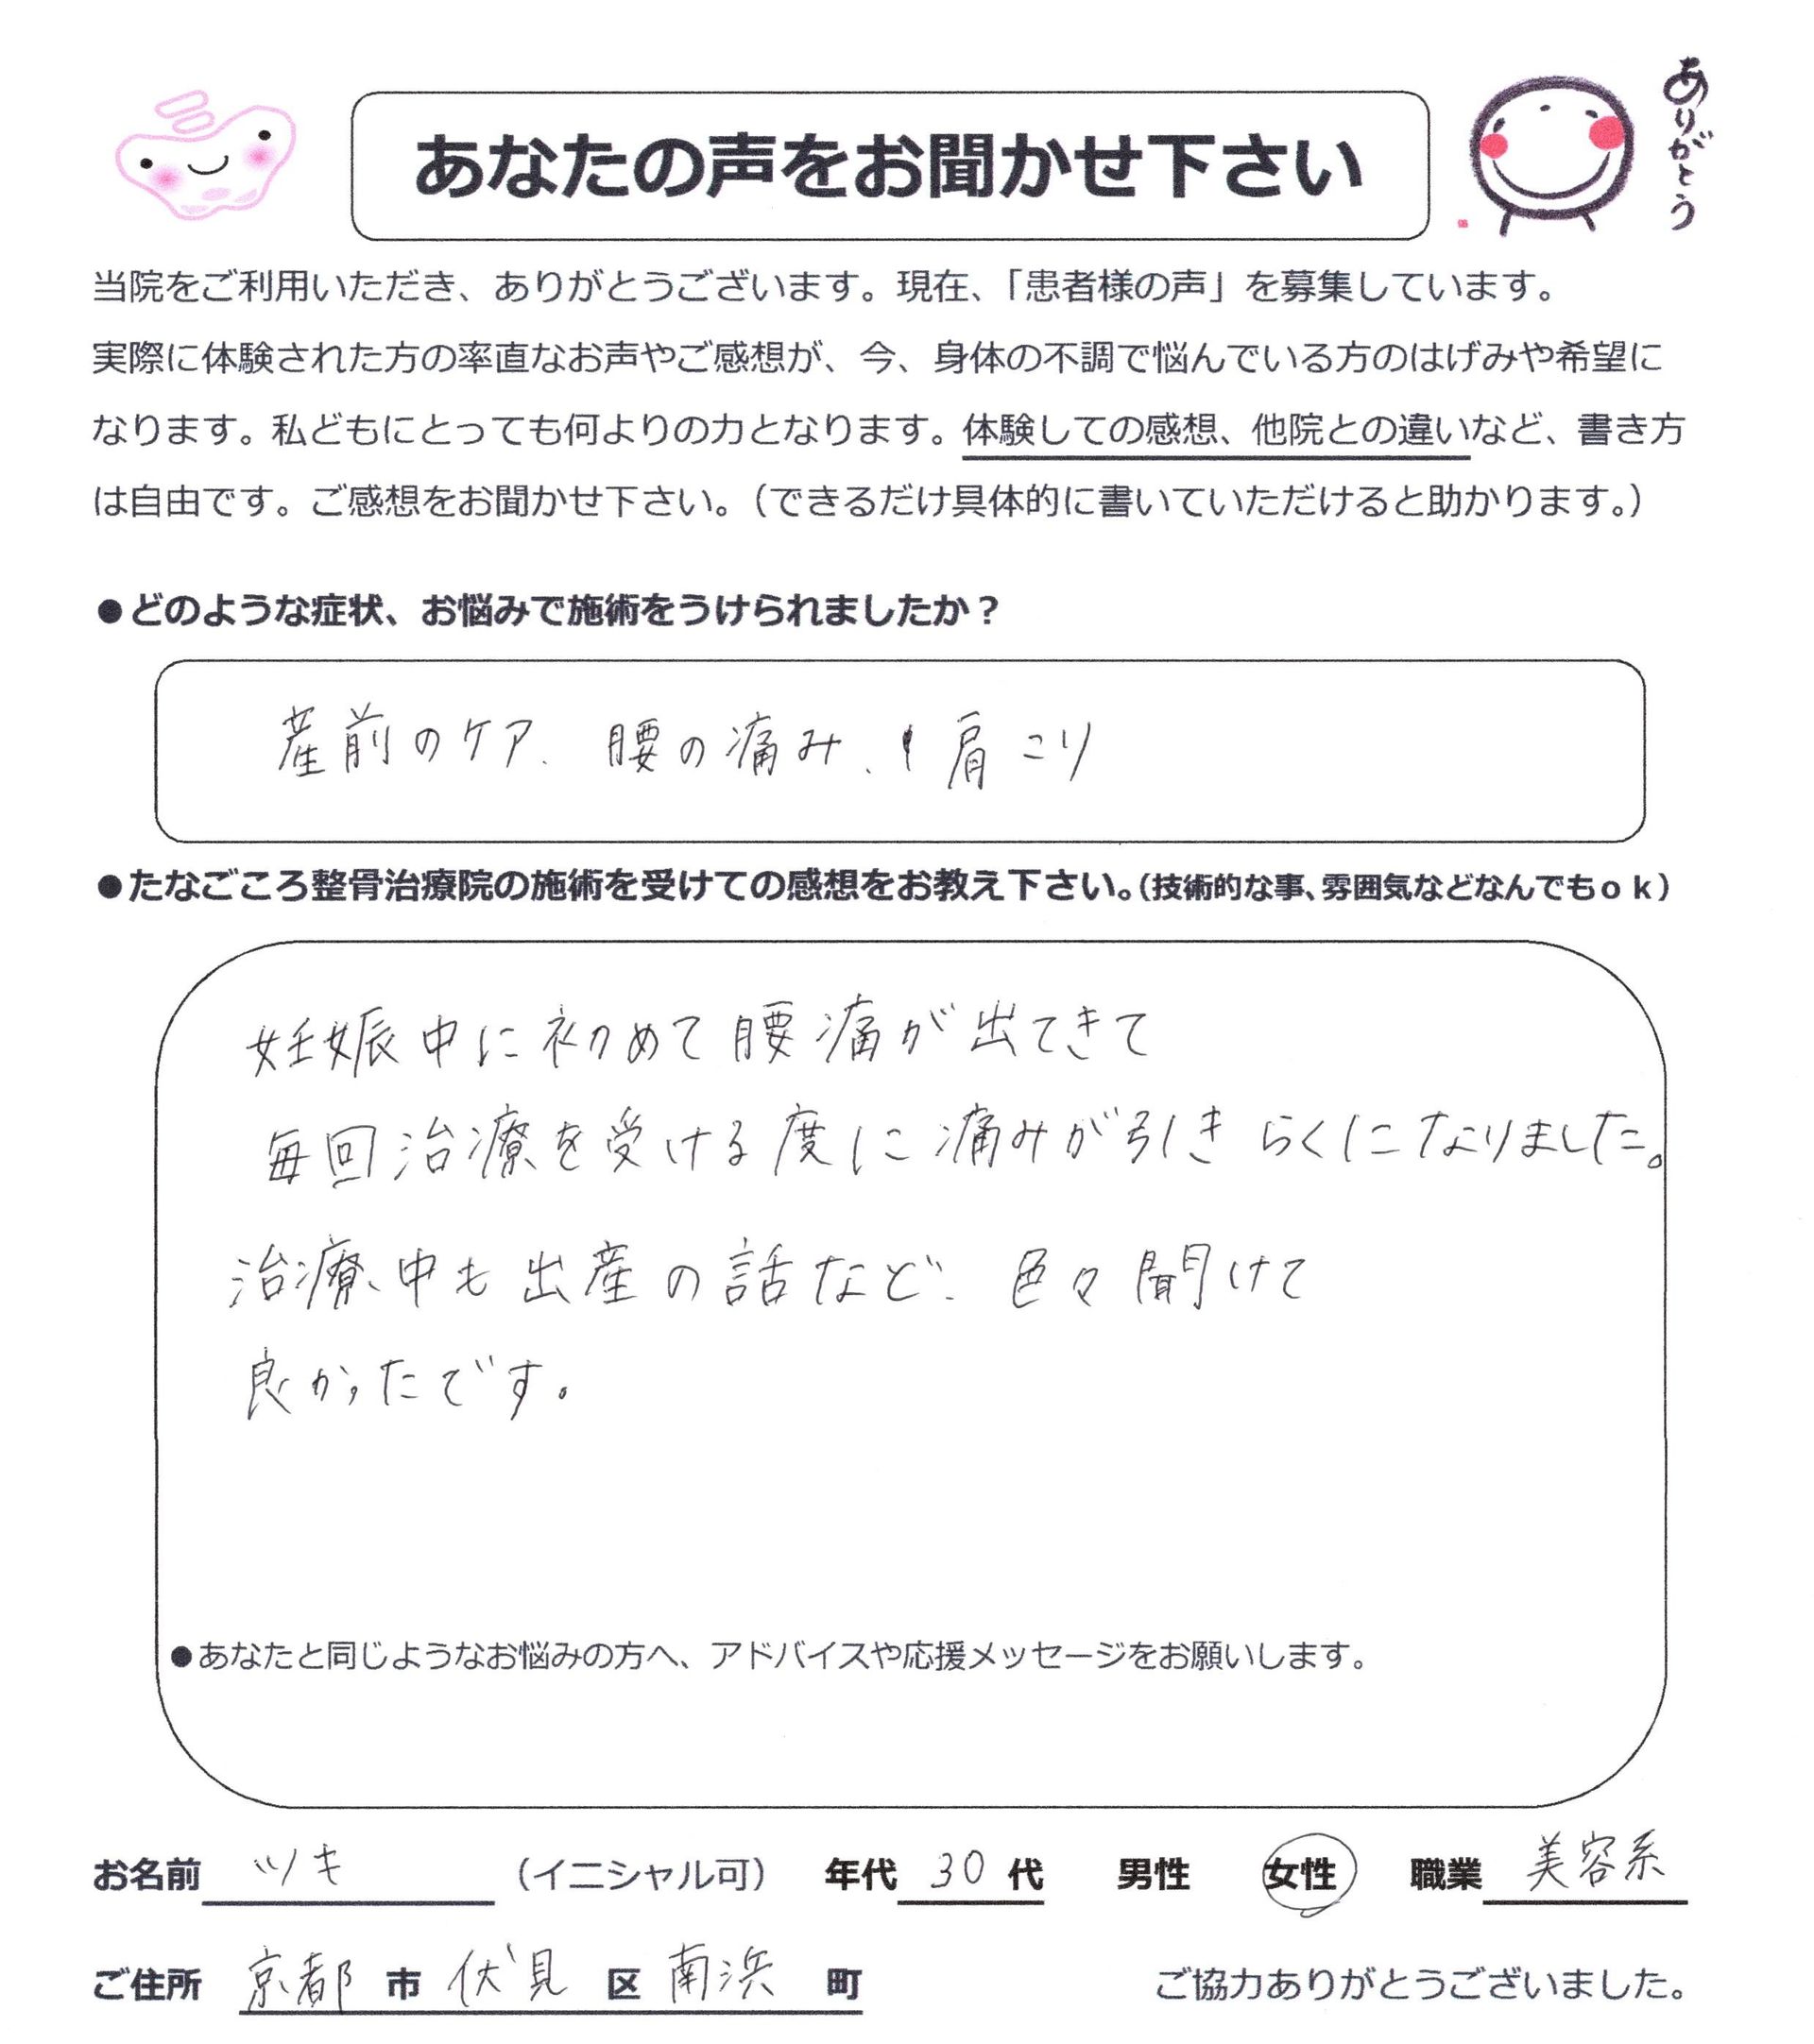 あなたの声をお聞かせ下さい
ありがとう
当院をご利用いただき、ありがとうございます。現在、「患者様の声」を募集しています。
実際に体験された方の率直なお声やご感想が、今、身体の不調で悩んでいる方のはげみや希望に
なります。私どもにとっても何よりの力となります。体験しての感想、他院との違いなど、書き方
は自由です。ご感想をお聞かせ下さい。（できるだけ具体的に書いていただけると助かります。）
●どのような症状、お悩みで施術をうけられましたか？
産前のケア、腰の痛み、肩こり
●たなごころ整骨治療院の施術を受けての感想をお教え下さい。（技術的な事、雰囲気などなんでもｏｋ）
妊娠中に初めて腰痛が出てきて
毎回治療を受ける度に痛みが引きらくになりました。
治療中も出産の話など、色々聞けて
良かったです。
●あなたと同じようなお悩みの方へ、アドバイスや応援メッセージをお願いします。
お名前 ツキ （イニシャル可） 年代 30 代 男性 女性 職業 美容系
ご住所 京都 市 伏見 区 南浜 町 ご協力ありがとうございました。